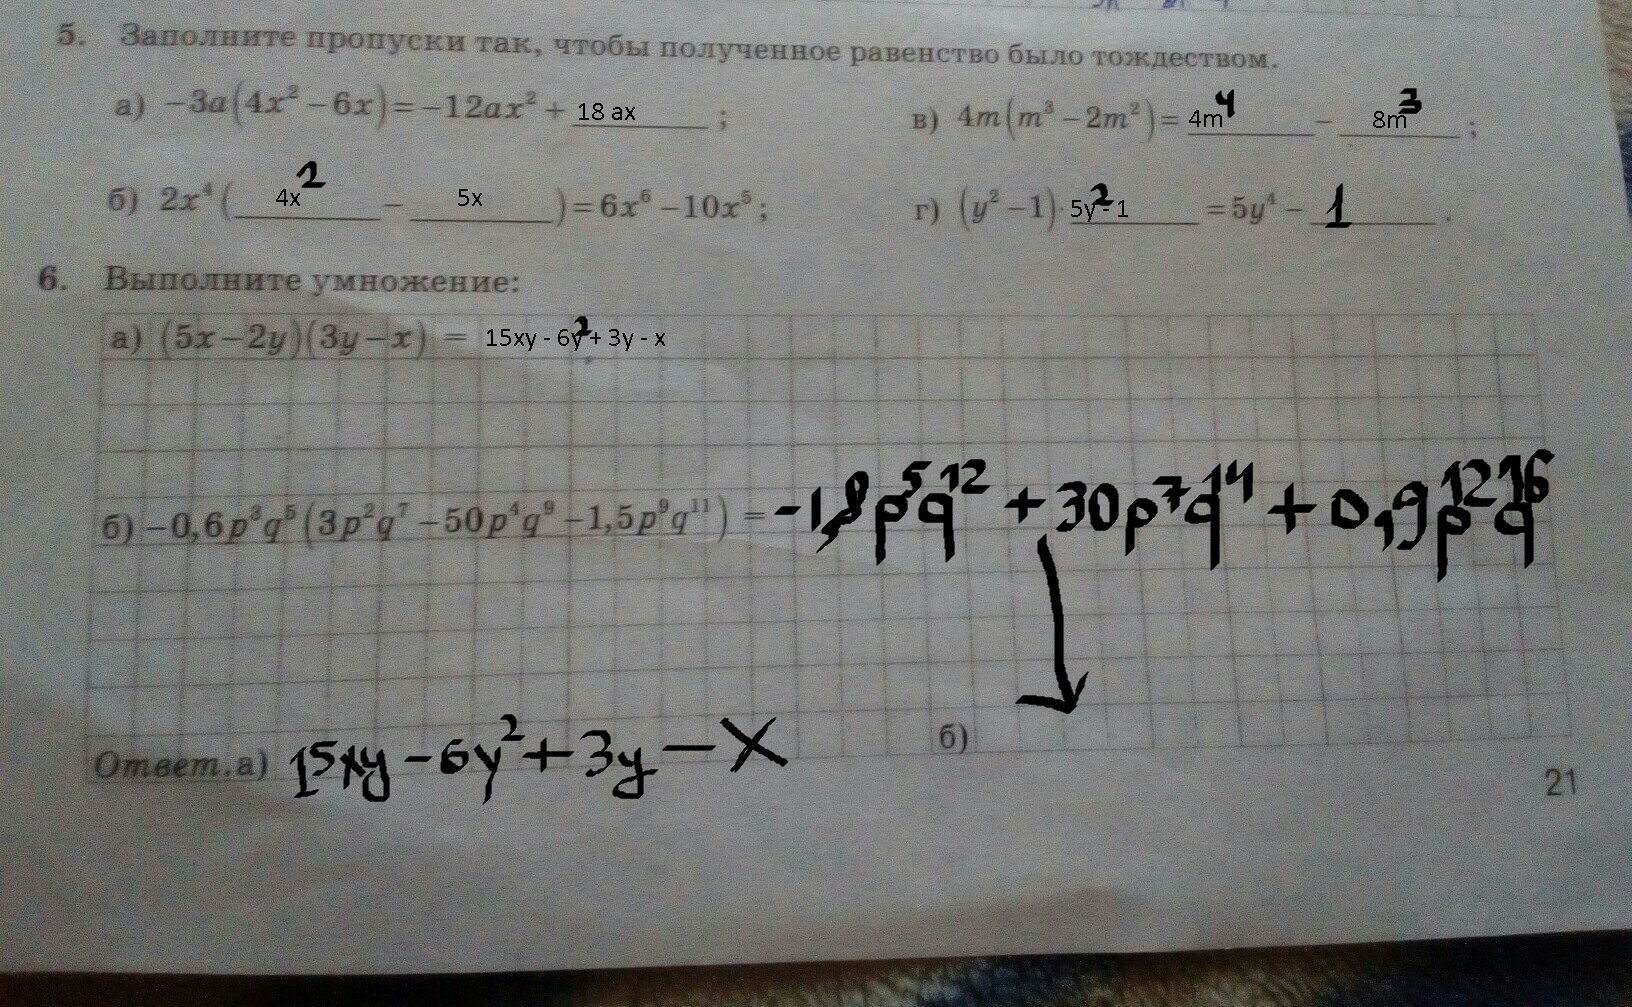 5. Заполните пропуски так, чтобы полученное равенство было тождеством.
а) −3a(4x² − 6x) = −12ax² + 18 ax ;
в) 4m(m³ − 2m²) = 4m⁴ − 8m³ ;
б) 2x⁴( 4x² − 5x ) = 6x⁶ − 10x⁵;
г) (y² − 1) · 5y² - 1 = 5y⁴ − 1 .
6. Выполните умножение:
а) (5x − 2y)(3y − x) = 15xy - 6y² + 3y - x
б) −0,6p³q⁵(3p²q⁷ − 50p⁴q⁹ − 1,5p⁹q¹¹) = -1,8p⁵q¹² + 30p⁷q¹⁴ + 0,9p¹²q¹⁶
Ответ. а) 15xy - 6y² + 3y - x б)
21